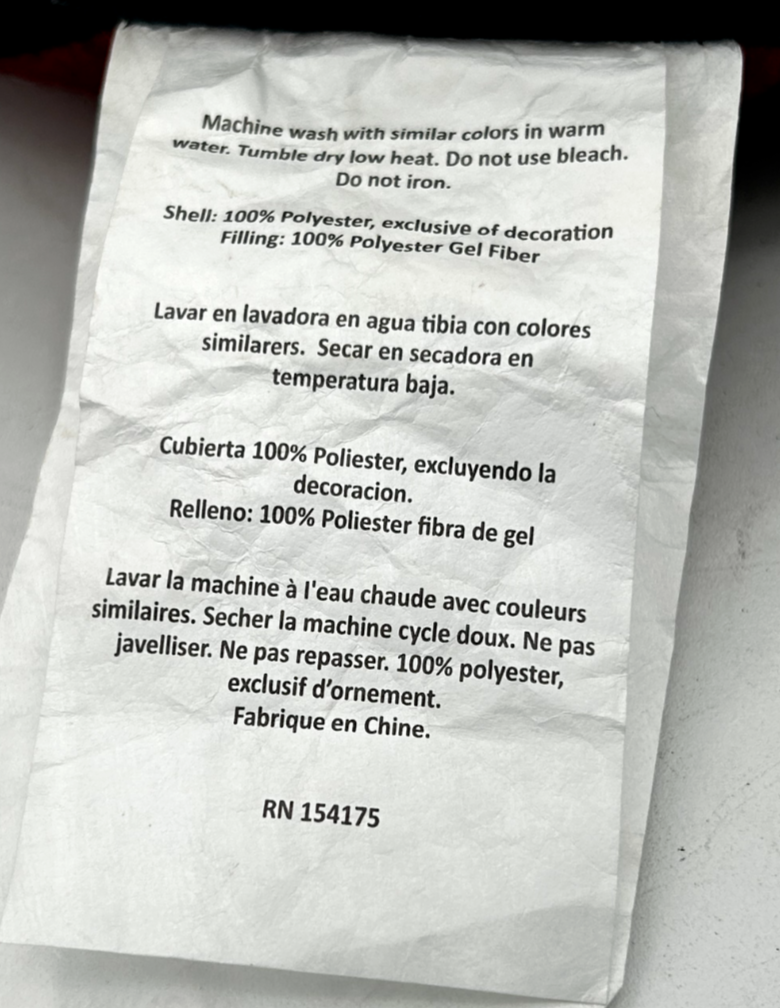 Machine wash with similar colors in warm
water. Tumble dry low heat. Do not use bleach.
Do not iron.
Shell: 100% Polyester, exclusive of decoration
Filling: 100% Polyester Gel Fiber
Lavar en lavadora en agua tibia con colores
similarers. Secar en secadora en
temperatura baja.
Cubierta 100% Poliester, excluyendo la
decoracion.
Relleno: 100% Poliester fibra de gel
Lavar la machine à l'eau chaude avec couleurs
similaires. Secher la machine cycle doux. Ne pas
javelliser. Ne pas repasser. 100% polyester,
exclusif d’ornement.
Fabrique en Chine.
RN 154175